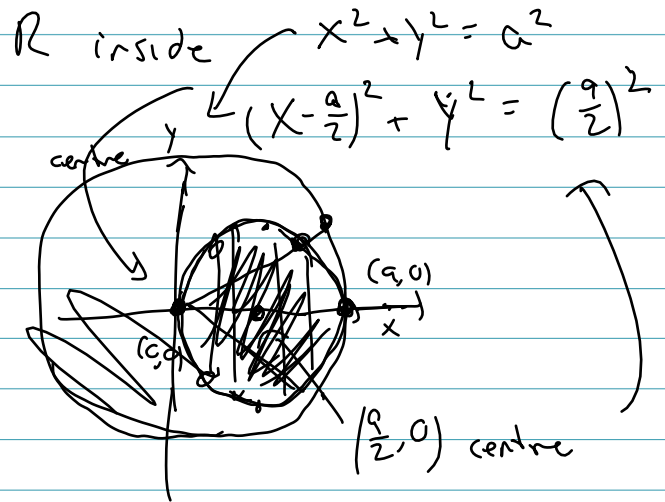 R inside x² + y² = a²
(x - a/2)² + y² = (a/2)²
centre
y
(a,0)
x
(0,0)
(a/2, 0) centre